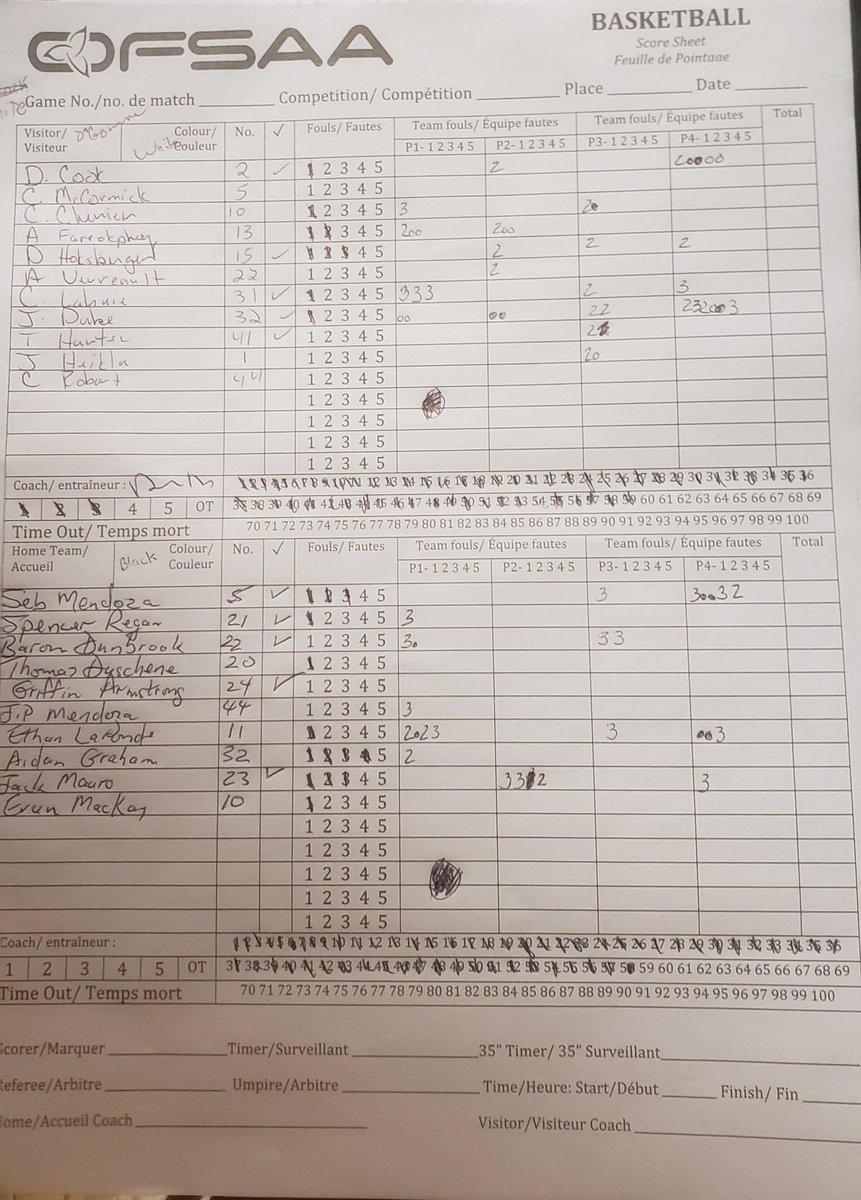 OFSAA
BASKETBALL
Score Sheet
Feuille de Pointage
Game No./no. de match Competition/ Compétition Place Date
Visitor/ Visiteur White Colour/ Couleur No. ✓ Fouls/ Fautes Team fouls/ Équipe fautes Team fouls/ Équipe fautes Total
P1- 1 2 3 4 5 P2- 1 2 3 4 5 P3- 1 2 3 4 5 P4- 1 2 3 4 5
D. Cook 2 ✓ 1 2 3 4 5 2 20000
C. McCormick 5 1 2 3 4 5
C. 10 1 2 3 4 5 3 20
A 13 1 2 3 4 5 200 200
D 15 ✓ 1 2 3 4 5 2 2 2
A Verreault 22 1 2 3 4 5 2
C. 31 ✓ 1 2 3 4 5 333 2 3
J. Duke 32 ✓ 1 2 3 4 5 00 00 22 232003
T Hunter 41 ✓ 1 2 3 4 5
J Heikla 1 1 2 3 4 5 20
C Robart 44 1 2 3 4 5
1 2 3 4 5
1 2 3 4 5
1 2 3 4 5
1 2 3 4 5
Coach/ entraîneur : 1 2 3 4 5 6 7 8 9 10 11 12 13 14 15 16 17 18 19 20 21 22 23 24 25 26 27 28 29 30 31 32 33 34 35 36
1 2 3 4 5 OT 37 38 39 40 41 42 43 44 45 46 47 48 49 50 51 52 53 54 55 56 57 58 59 60 61 62 63 64 65 66 67 68 69
Time Out/ Temps mort 70 71 72 73 74 75 76 77 78 79 80 81 82 83 84 85 86 87 88 89 90 91 92 93 94 95 96 97 98 99 100
Home Team/ Accueil Black Colour/ Couleur No. ✓ Fouls/ Fautes Team fouls/ Équipe fautes Team fouls/ Équipe fautes Total
P1- 1 2 3 4 5 P2- 1 2 3 4 5 P3- 1 2 3 4 5 P4- 1 2 3 4 5
Seb Mendoza 5 ✓ 1 2 3 4 5 3 30032
Spencer Regan 21 ✓ 1 2 3 4 5 3
Baron Dunbrook 22 ✓ 1 2 3 4 5 30 33
Thomas Duschene 20 1 2 3 4 5
Griffin Armstrong 24 ✓ 1 2 3 4 5
J.P Mendoza 44 1 2 3 4 5 3
Ethan Lalonde 11 1 2 3 4 5 2023 3 003
Aidan Graham 32 1 2 3 4 5 2
Jack Mauro 23 ✓ 1 2 3 4 5 3312 3
Evan MacKay 10 1 2 3 4 5
1 2 3 4 5
1 2 3 4 5
1 2 3 4 5
1 2 3 4 5
1 2 3 4 5
Coach/ entraîneur : 1 2 3 4 5 6 7 8 9 10 11 12 13 14 15 16 17 18 19 20 21 22 23 24 25 26 27 28 29 30 31 32 33 34 35 36
1 2 3 4 5 OT 37 38 39 40 41 42 43 44 45 46 47 48 49 50 51 52 53 54 55 56 57 58 59 60 61 62 63 64 65 66 67 68 69
Time Out/ Temps mort 70 71 72 73 74 75 76 77 78 79 80 81 82 83 84 85 86 87 88 89 90 91 92 93 94 95 96 97 98 99 100
Scorer/Marquer Timer/Surveillant 35" Timer/ 35" Surveillant
Referee/Arbitre Umpire/Arbitre Time/Heure: Start/Début Finish/ Fin
Home/Accueil Coach Visitor/Visiteur Coach